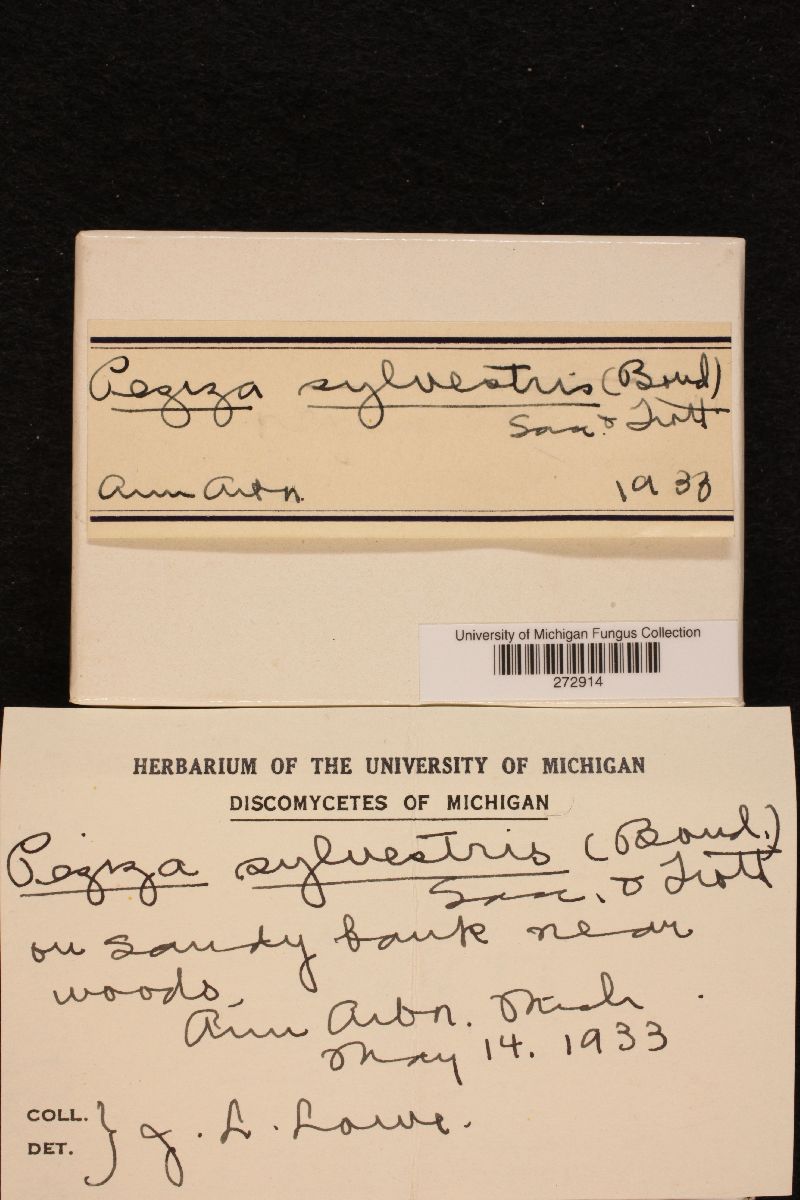 Peziza sylvestris (Boud)
Sacc. & Trott
Ann Arbor. 1933
University of Michigan Fungus Collection
272914
HERBARIUM OF THE UNIVERSITY OF MICHIGAN
DISCOMYCETES OF MICHIGAN
Peziza sylvestris (Boud.)
Sacc. & Trott
on sandy bank near
woods,
Ann Arbor. Mich.
May 14. 1933
COLL.
DET. } J. L. Lowe.